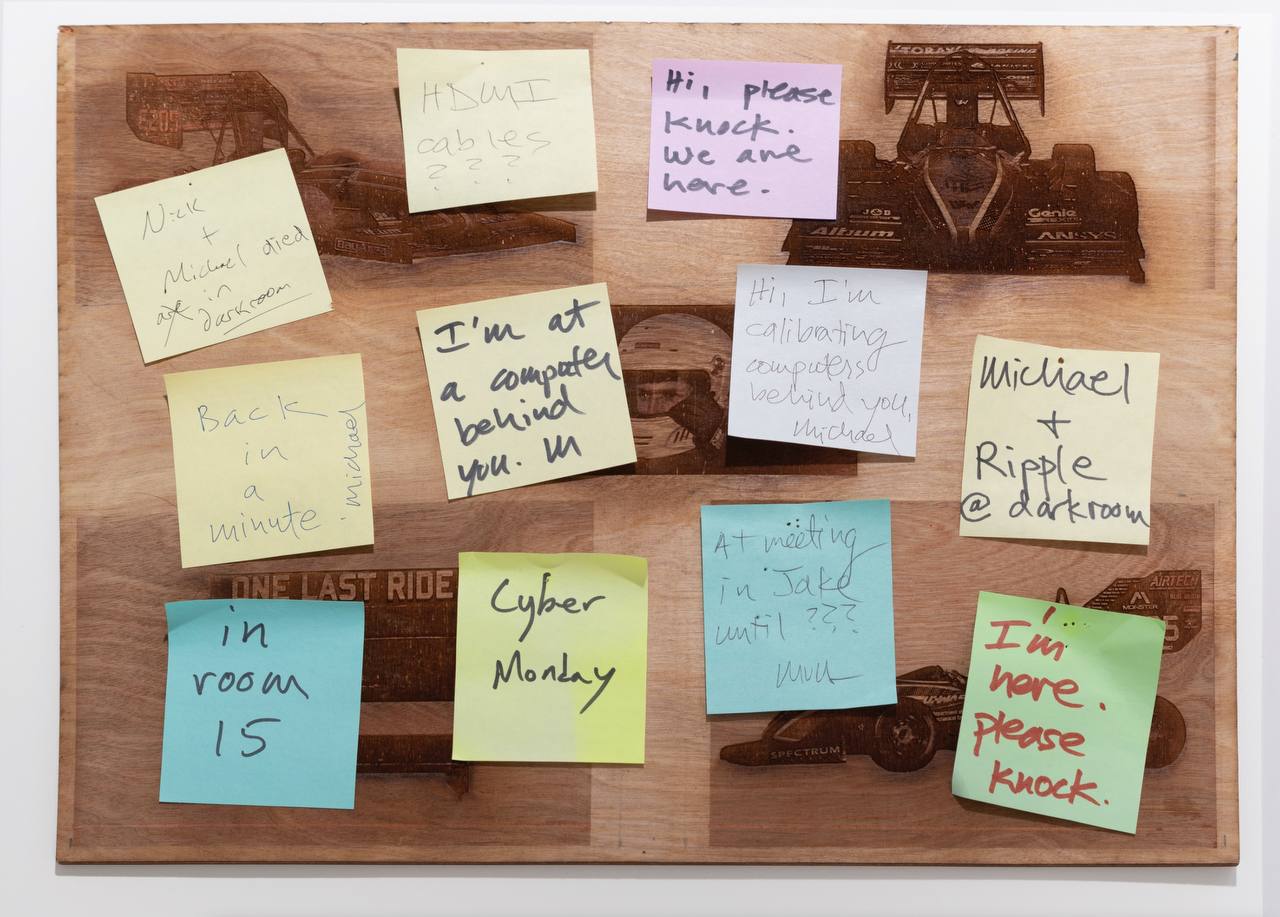 HDMI
cables
? ? ?
Hi, please
knock.
we are
here.
TORAY
BOEING
JOB
Genie
Altium
ANSYS
E205
Nick
+
Michael died
in
darkroom
Hi, I'm
calibrating
computers
behind you,
Michael
I'm at
a computer
behind
you. M
Michael
+
Ripple
@ darkroom
Back
in
a
minute
- michael
At meeting
in Jake
until ???
ONE LAST RIDE
Cyber
Monday
in
room
15
AIRTECH
MONSTER
5
I'm
here.
please
knock.
SPECTRUM